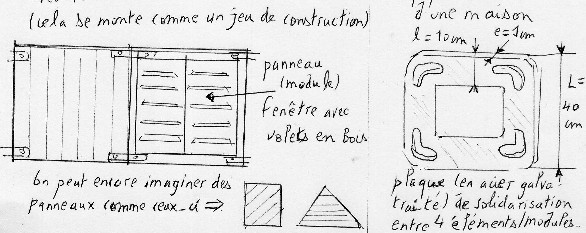 (cela se monte comme un jeu de construction)
panneau
(module)
fenêtre avec
volets en bois
On peut encore imaginer des
panneaux comme ceux-ci ⇒
d'une maison
l = 10 cm
e = 1 cm
L =
40
cm
plaque (en acier galva
traité) de solidarisation
entre 4 éléments/modules